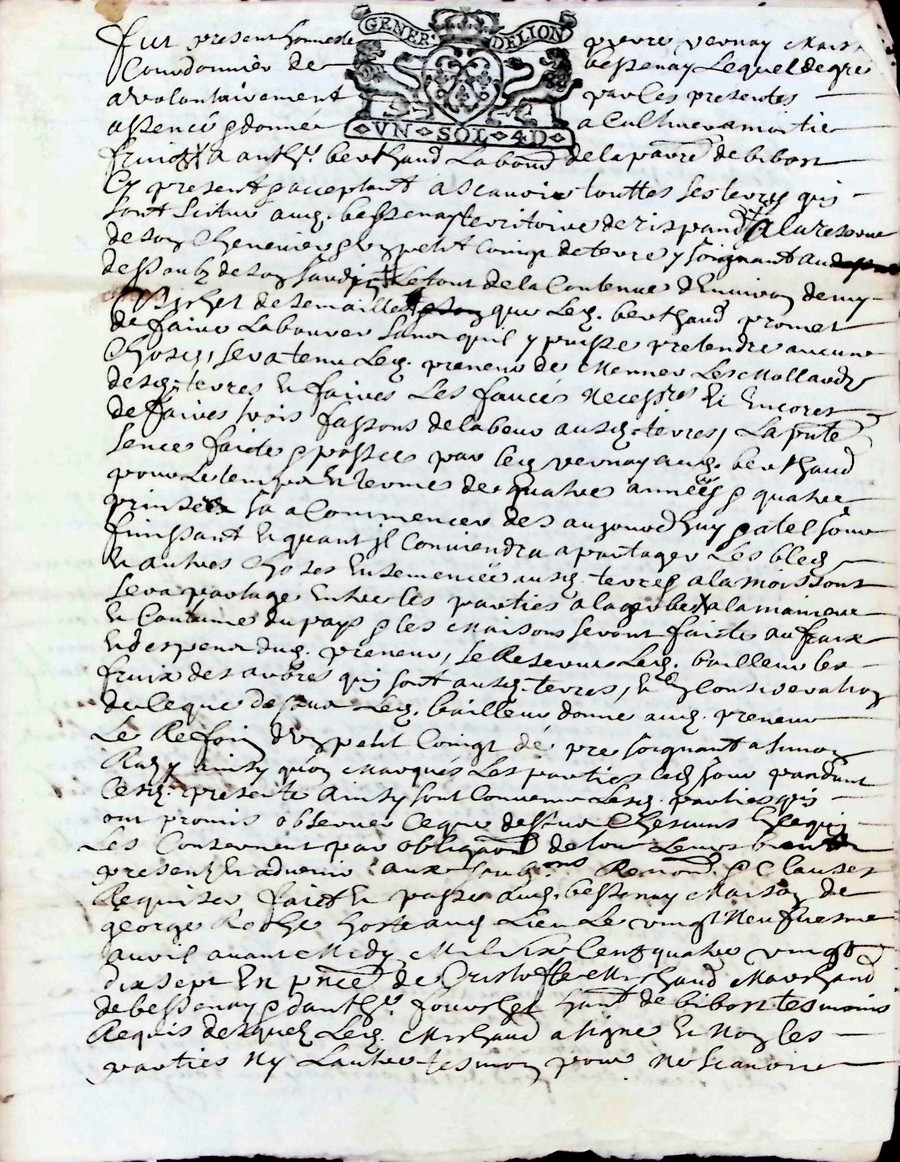 GENER DELION
VN SOL 4D
Fut present honneste pierre vernay Maist
Courdonnier de bessenay Lequel de gre
a volontairement par Ces presentes
assencé & donné a Cultiver a moitie
fruictz a anth.e berthaud Lab.r de la parre de bibost
Cy present & acceptant a scavoir touttes ses terres qui
sont scitué aud. bessenay territoire de rispand A la reserve
de son Chenevier & un petit Coing de terre y joignant au
dessoubz de son Jardin Le tout de la Contenue d'Environ demy
Bichet de semaille que Led. berthaud promet
de faire Labourer sans quil y puisse pretendre aucune
Chose, sera tenu Led. preneur de Menner Les Mollards
desd. terres Et faires Les faucés necess.res Et Encores
de faires trois fassons de labeur ausd. terres, La pnte
sence faicte & passée par led. vernay aud. berthaud
pour Le temps Et termes de quatres années & quatre
prinses a Commencer des aujourdhuy & a tel jour
finissant Et quant Jl Conviendra a partager Les bleds
Et autres Choses Ensemencées ausd. terres a la moissont
sera partagé Entre les parties a la gerbe a la maniere
et Coutume du pays & les Maisons seront faicte au fraix
Et despens dud. preneur, se Reserve Led. bailleur les
fruix des arbres qui sont ausd. terres, Et En Consideration
de Ce que dessus Led. bailleur donne aud. preneur
Le Refoin d'un petit Coingt de pre joignant a simon
ainsy quon Marqués Les parties Ced. jour pandant
Cesd. presente Ainsy sont Convenu Lesd. parties qui
ont promis observer Ce que dessus Chescuns En Ce qui
Les Consernent par obligaon de tous Leurs biens
presents Et advenir aux Renon. & Clauses
Requises faict Et passé aud. bessenay Maison de
george hoste aud. Lieu Le vingt Neufviesme
auvril avant Midy Mil six Centz quatre vingt
dix sept En pnce de Cristofle Michaud Marchand
de bessenay & d'anth.e hant de bibost tesmoins
Requis desquel Led. Michaud a signé Et Non les
parties Ny Lautre tesmoin pour ne scavoir